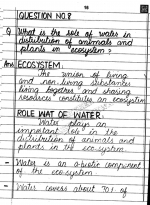 98
QUESTION NO.8
Q What is the role of water in
distribution of animals and
plants in ecosystem?
Ans ECOSYSTEM:
The union of living
and non-living substances
living together and sharing
resources constitutes an ecosystem
ROLE WHAT OF WATER:
Water plays an
important role in the
distribution of animals and
plants in the eco-system
- Water is an a-biotic component
of the eco-system
- Water covers about 70% of